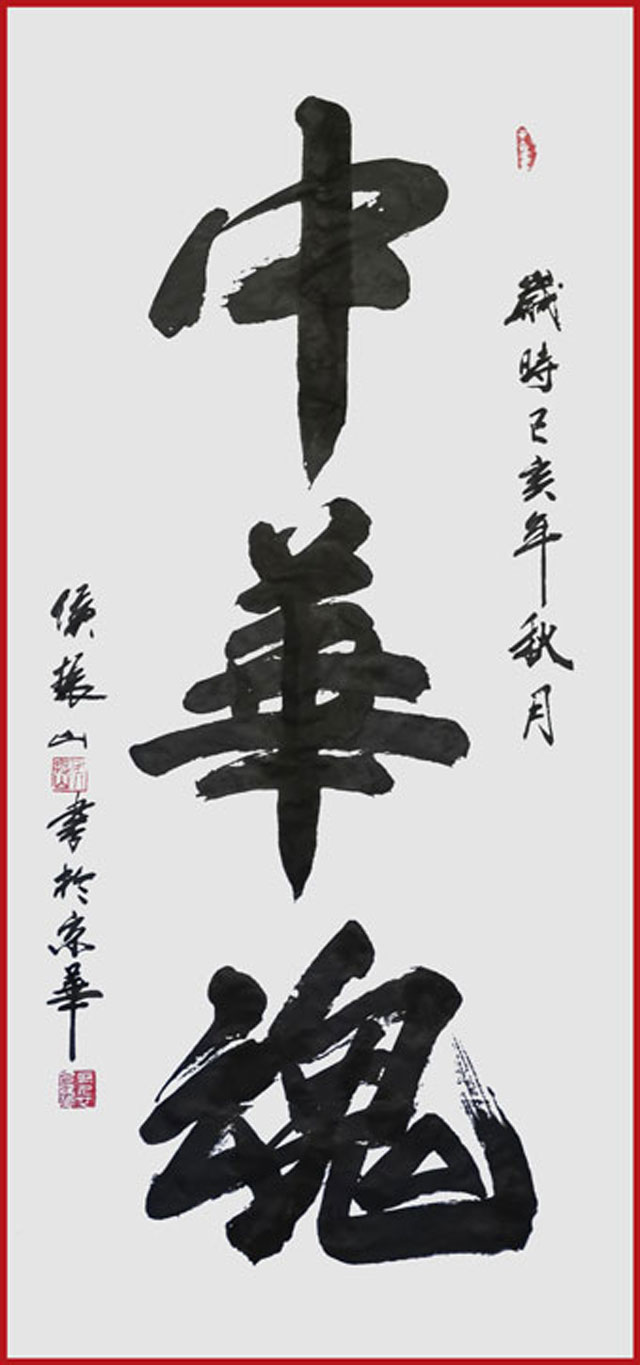 歲時己亥年秋月
中華魂
侯振山
書於京華